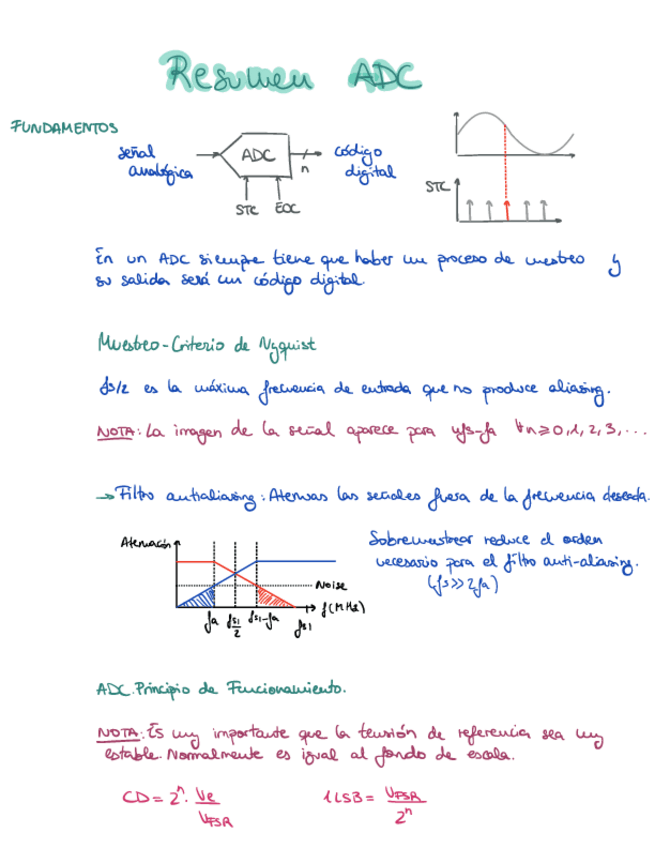 Resumen ADC
FUNDAMENTOS
señal
analógica
ADC
n
código
digital
STC EOC
STC
En un ADC siempre tiene que haber un proceso de muestreo y
su salida será un código digital.
Muestreo-Criterio de Nyquist
fs/2 es la máxima frecuencia de entrada que no produce aliasing.
NOTA: La imagen de la señal aparece para nfs-fa ∀n≥0,1,2,3,...
→Filtro antialiasing: Atenuas las señales fuera de la frecuencia deseada.
Atenuación
Noise
f(MHz)
fa fs1/2 fs1-fa fs1
Sobremuestrear reduce el orden
necesario para el filtro anti-aliasing.
(fs>>2fa)
ADC. Principio de Funcionamiento.
NOTA: Es muy importante que la tensión de referencia sea muy
estable. Normalmente es igual al fondo de escala.
CD = 2^n · Ve/VFSR
1LSB = VFSR/2^n